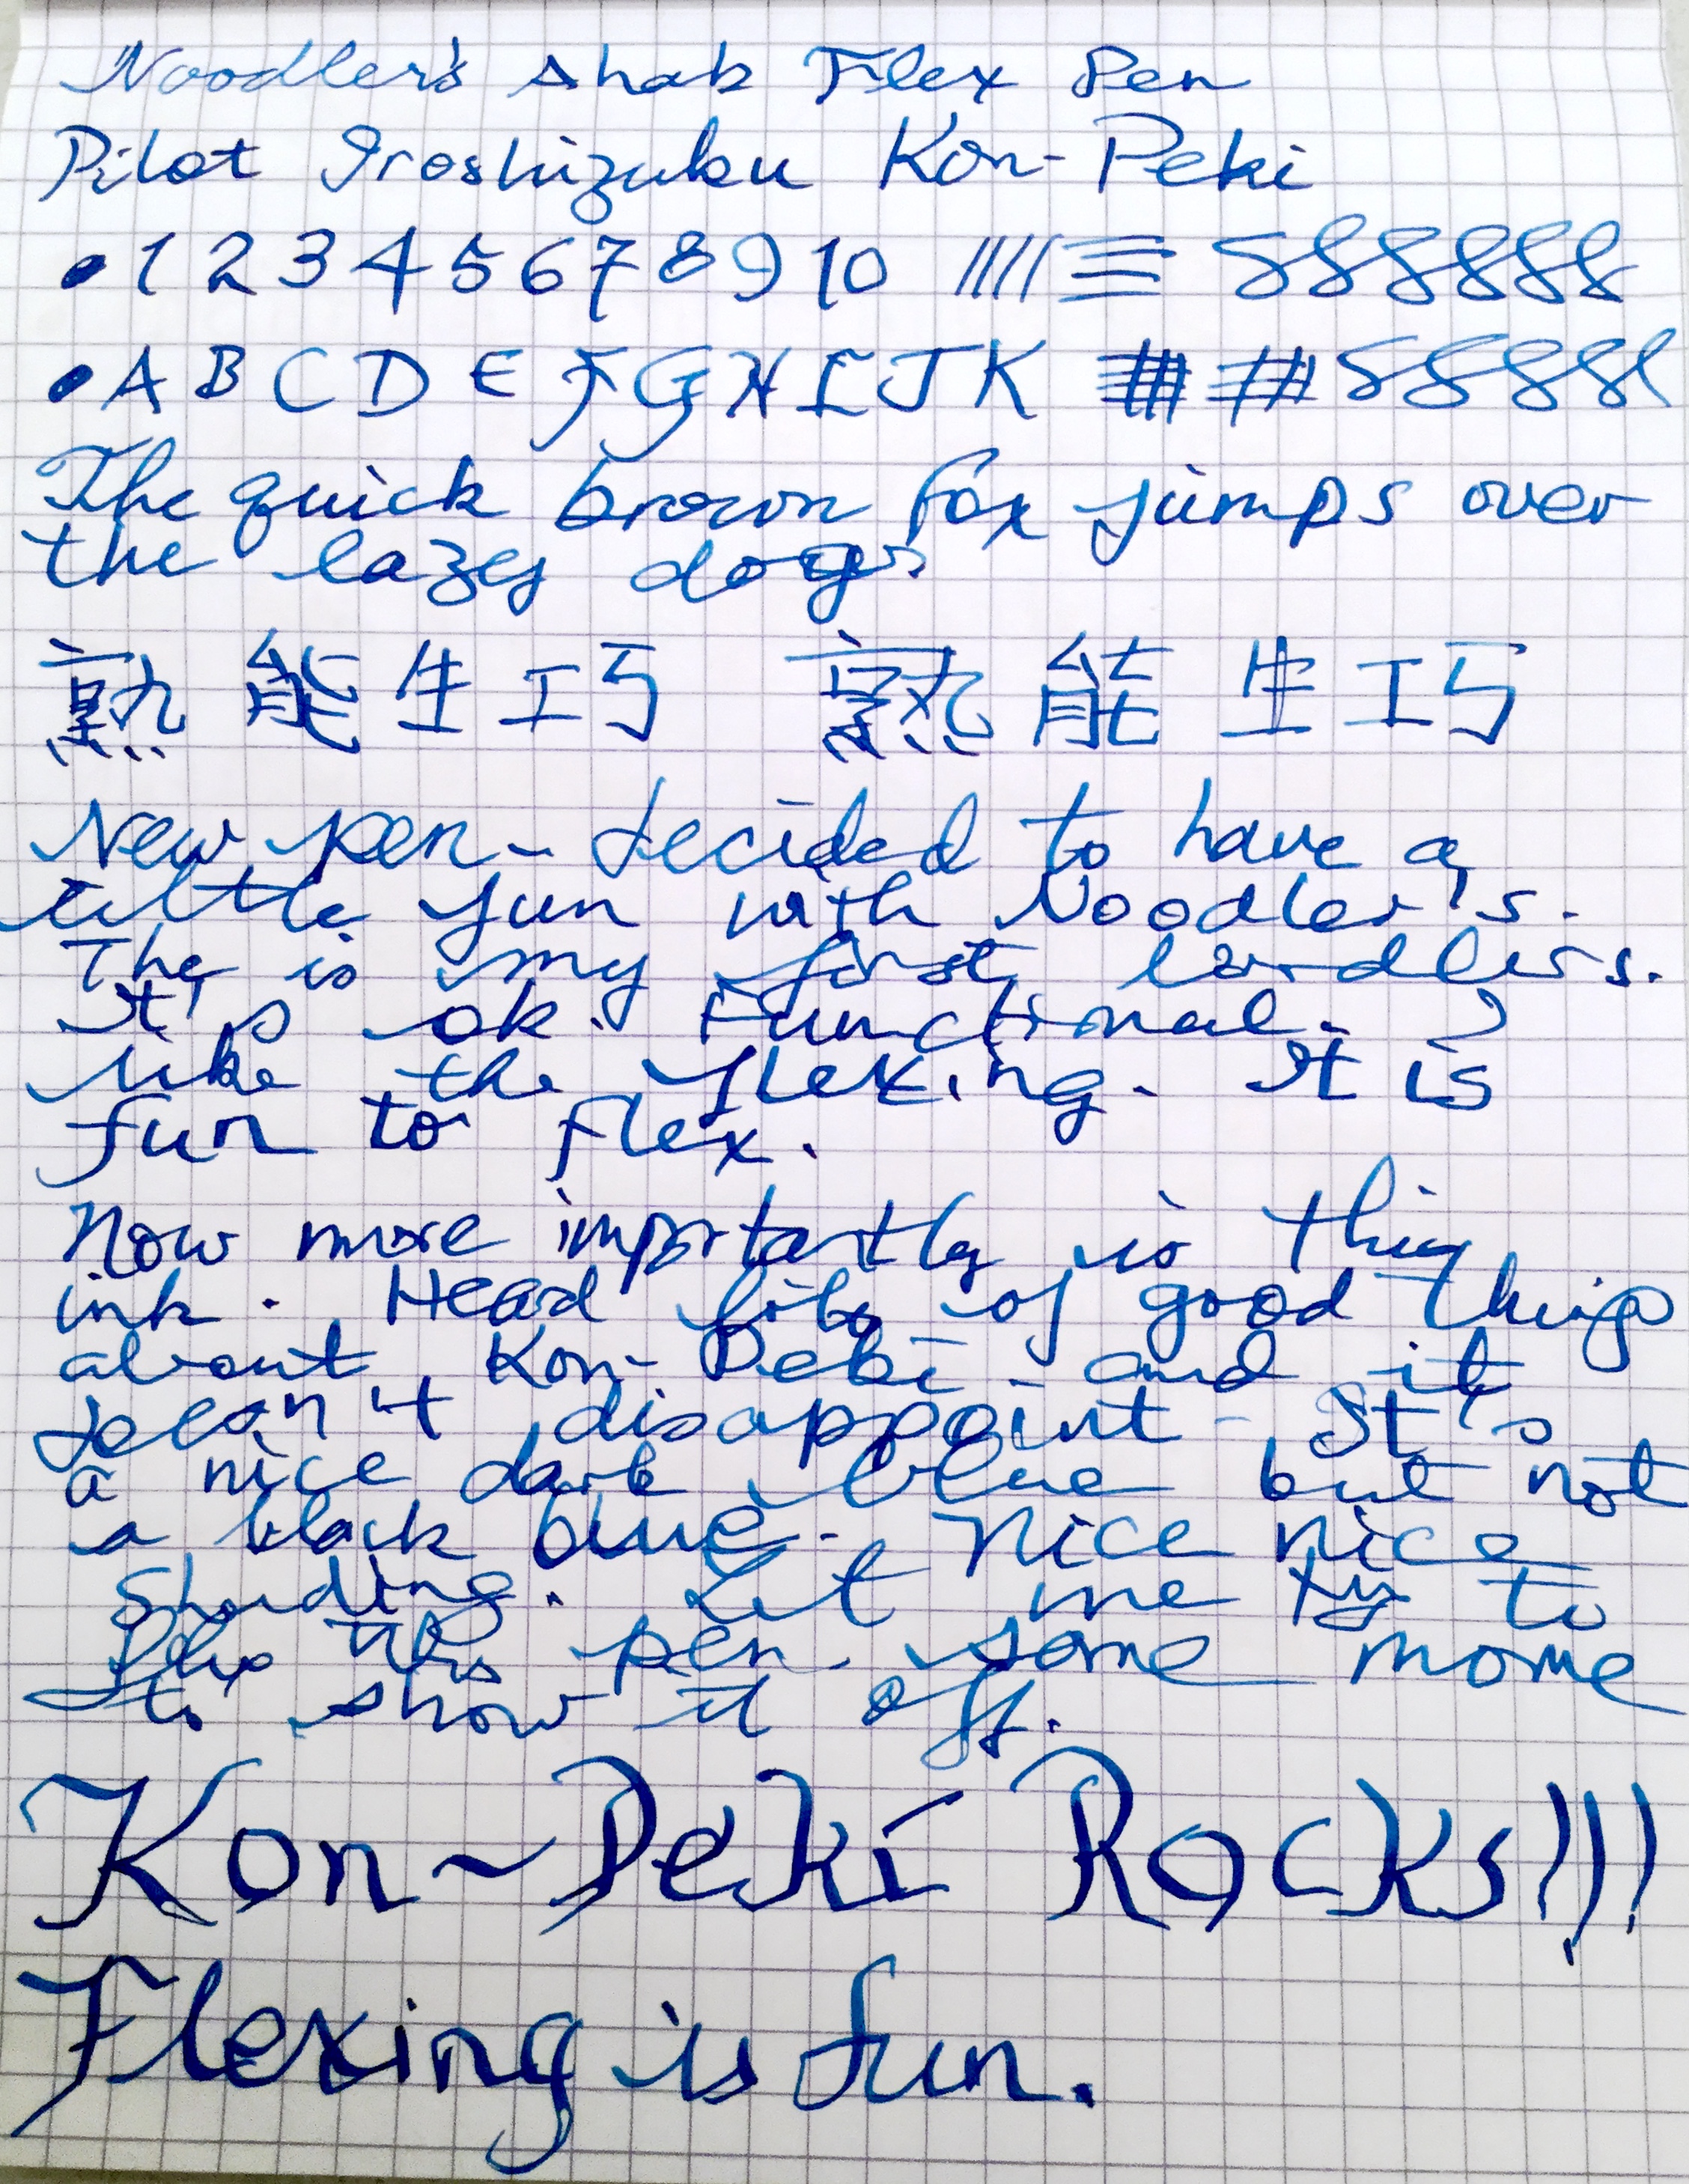 Noodler's Ahab Flex Pen
Pilot Iroshizuku Kon-Peki
• 1 2 3 4 5 6 7 8 9 10 //// 8888888
• A B C D E F G H I J K # # 88888
The quick brown fox jumps over
the lazy dogs
熟能生巧 熟能生巧
New pen - decided to have a
little fun with Noodler's.
The is my first
It's ok. Functional. I
like the flexing. It is
fun to flex.
Now more importantly is this
ink. Head lots of good things
about Kon-Peki - and it
doesn't disappoint - It's
a nice dark blue but not
a black blue. Nice nice
shading. Let me try to
flex this pen some more
to show it off.
Kon-Peki Rocks!!!
Flexing is fun.